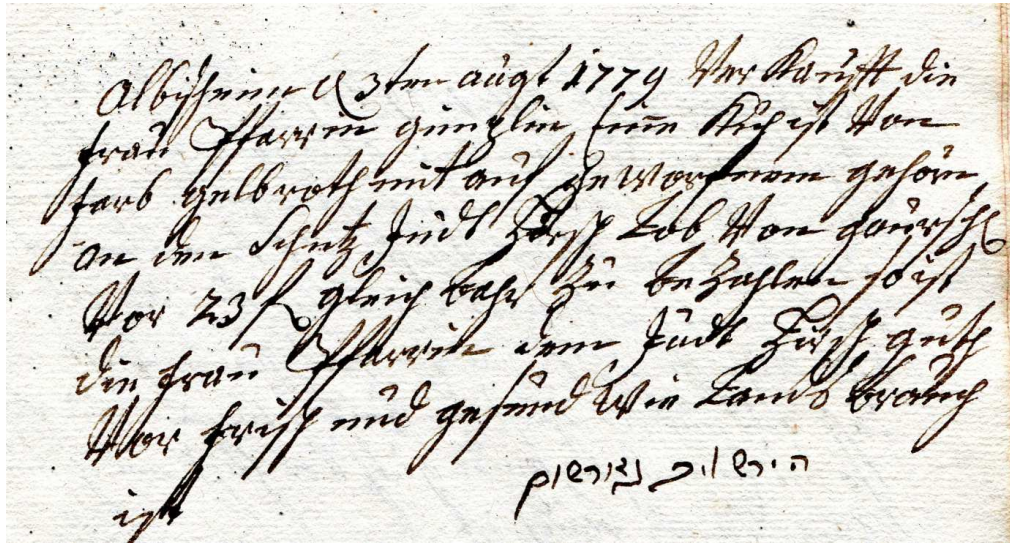 Albisheim d 3ten augt 1779 Verkaufft die
frau Pfarrin günzlin, Eine Kuh ist Von
farb gelbroth mit auf geworfenem gehörn,
an den Schutz Judt Hirsch Löb Von gauersch
Vor 23 f gleich bahr zu bezahlen so ist
die frau Pfarrin dem Judt Hirsch guth
Vor frisch und gesund Wie Lands brauch
ist
הירש